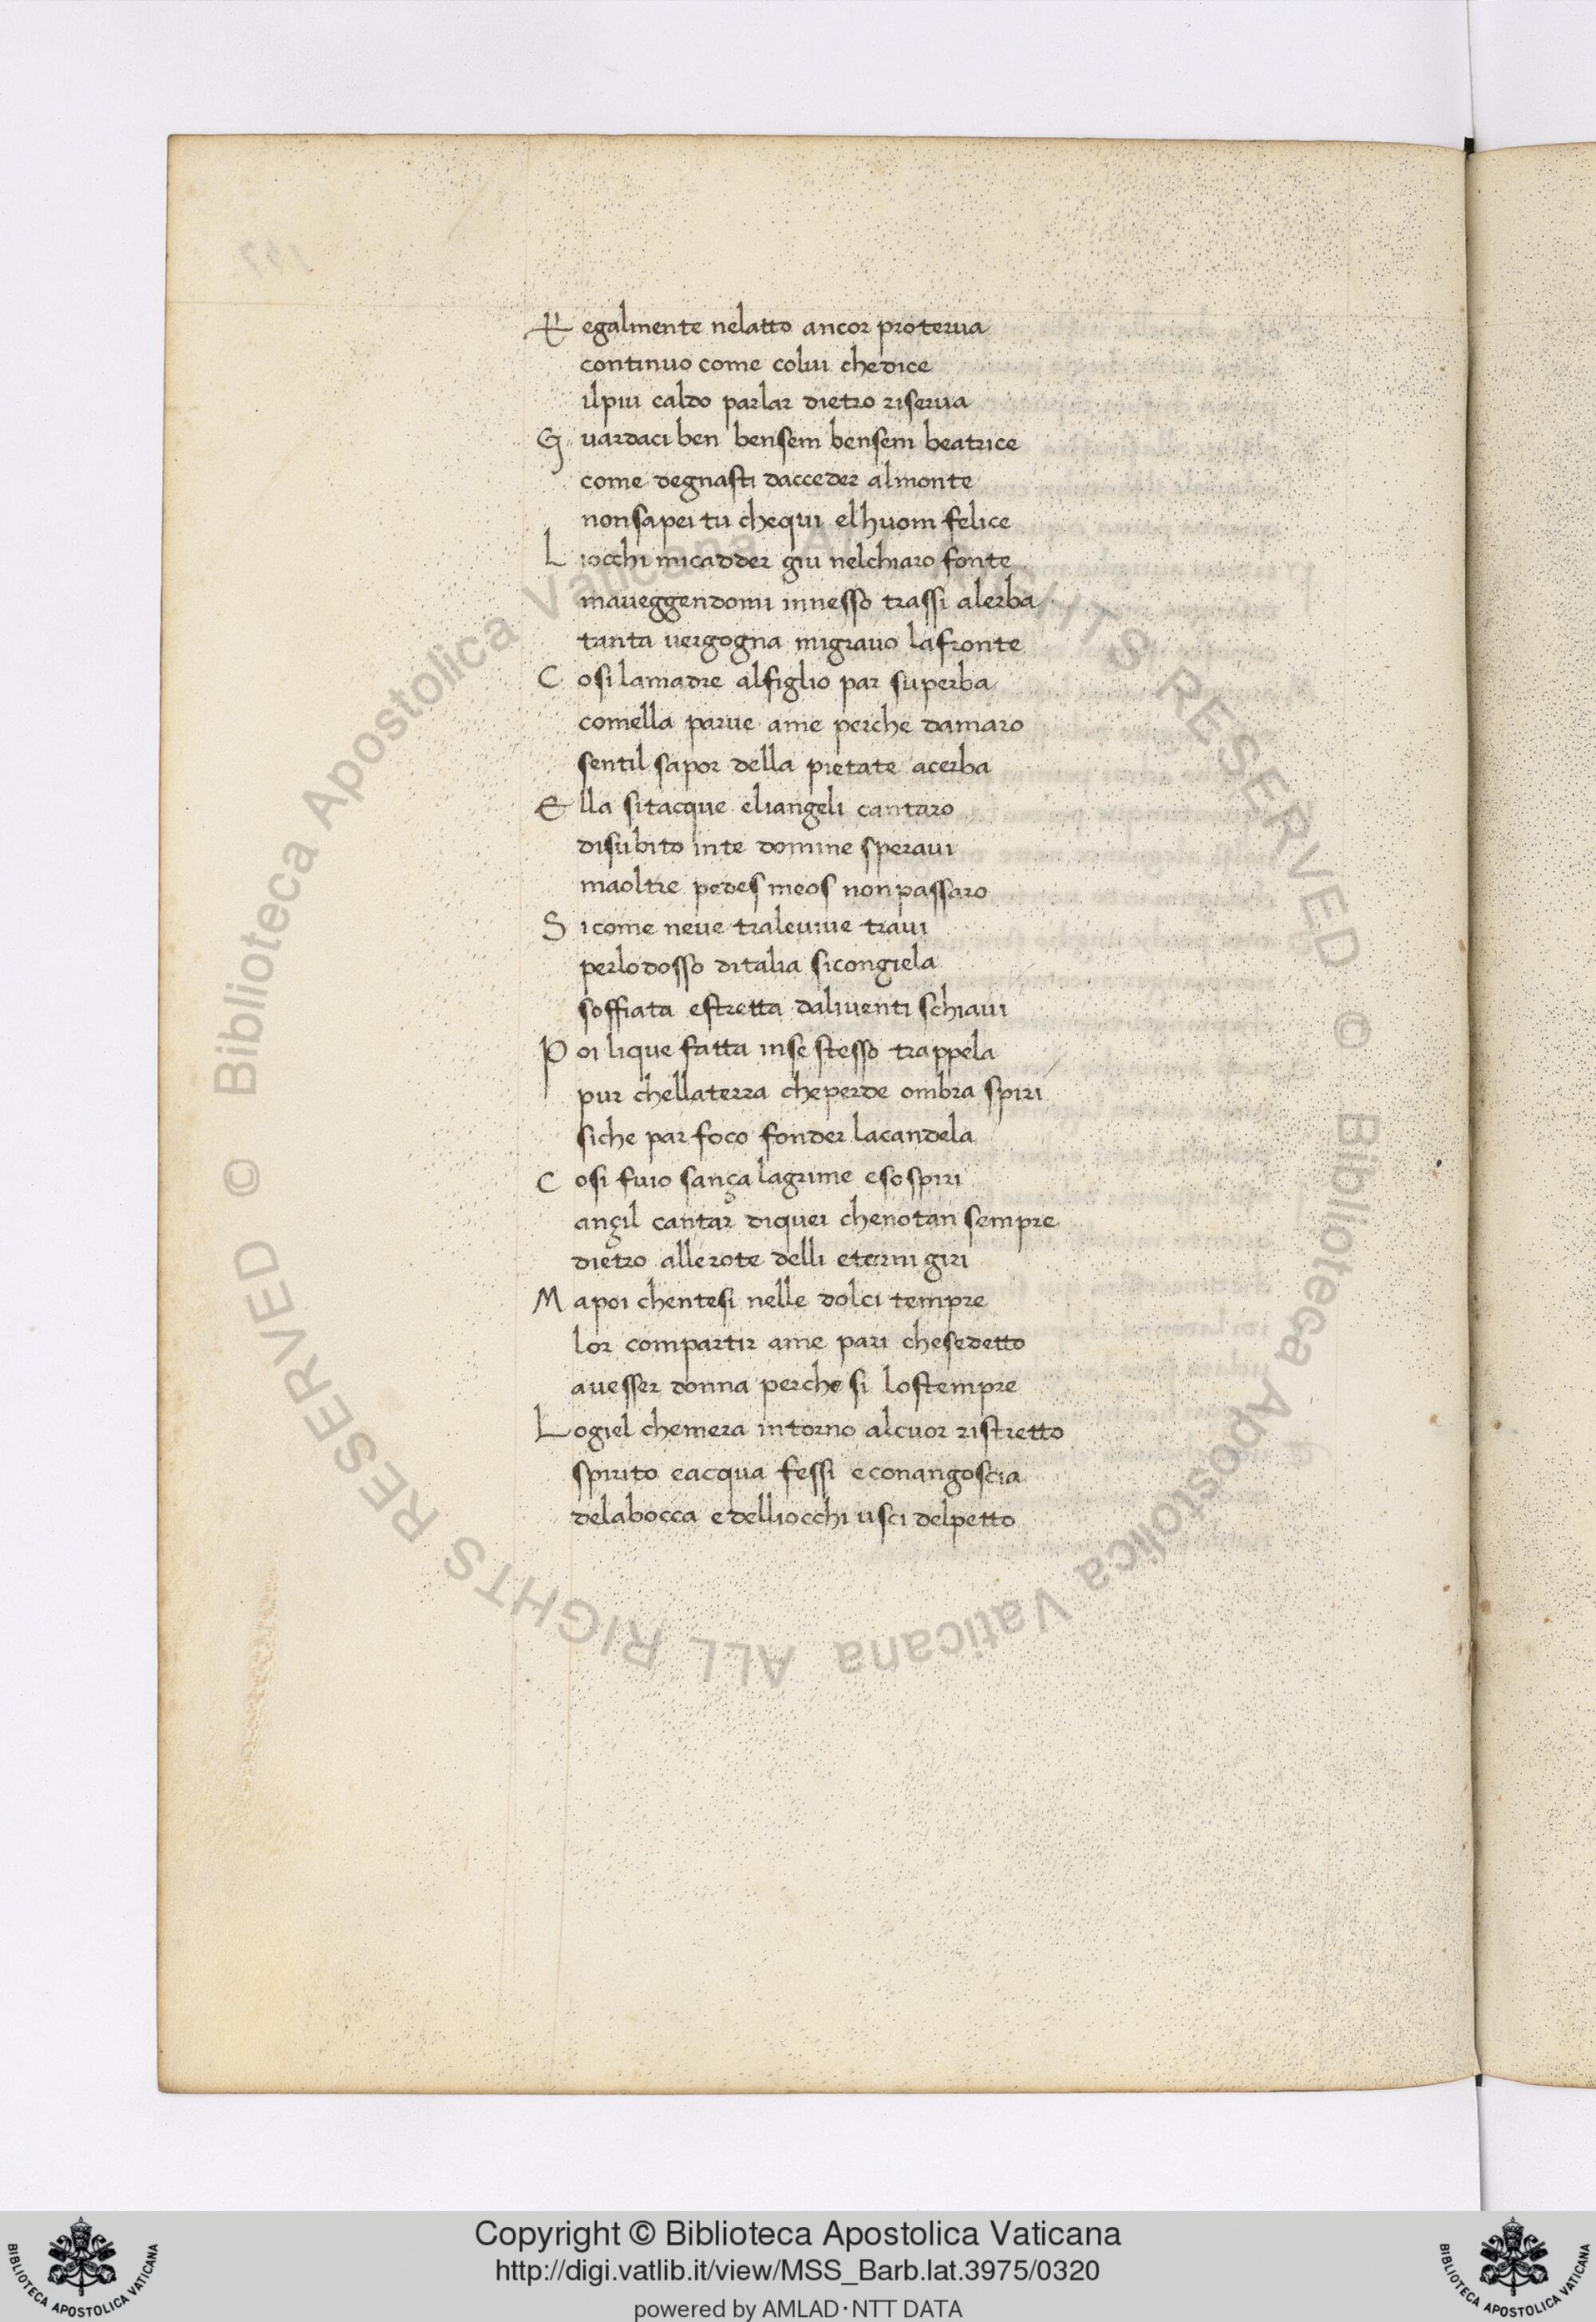 Regalmente nelatto ancor proterua
continuo come colui chedice
ilpiu caldo parlar dietro riserua
Guardaci ben bensem bensem beatrice
come degnasti dacceder almonte
nonsapei tu chequi elhuom felice
Liocchi micadder giu nelchiaro fonte
maueggendomi innesso trassi alerba
tanta vergogna migrauo lafronte
Cosi lamadre alfiglio par superba
comella parue ame perche damaro
sentil sapor della pietate acerba
Ella sitacque eliangeli cantaro
disubito inte domine speraui
maoltre pedes meos nonpassaro
Sicome neue traleuiue traui
perlodosso ditalia sicongiela
soffiata estretta daliventi schiaui
Poi lique fatta inse stesso trappela
pur chellaterra cheperde ombra spiri
siche par foco fonder lacandela
Cosi fuio sança lagrime esospiri
ançil cantar diquei chenotan sempre
dietro allerote delli eterni giri
Mapoi chentesi nelle dolci tempre
lor compartir ame pari chesedetto
auesser donna perche si lostempre
Logiel chemera intorno alcuor ristretto
spirito eacqua fessi econangoscia
delabocca edelliocchi usci delpetto
Biblioteca Apostolica Vaticana ALL RIGHTS RESERVED ©
Biblioteca Apostolica Vaticana ALL RIGHTS RESERVED ©
Copyright © Biblioteca Apostolica Vaticana
http://digi.vatlib.it/view/MSS_Barb.lat.3975/0320
powered by AMLAD·NTT DATA
BIBLIOTECA APOSTOLICA VATICANA
BIBLIOTECA APOSTOLICA VATICANA